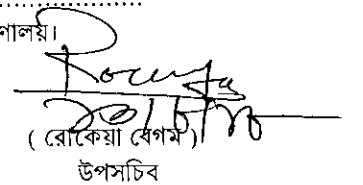 ণালয়।
( রোকেয়া বেগম )
উপসচিব